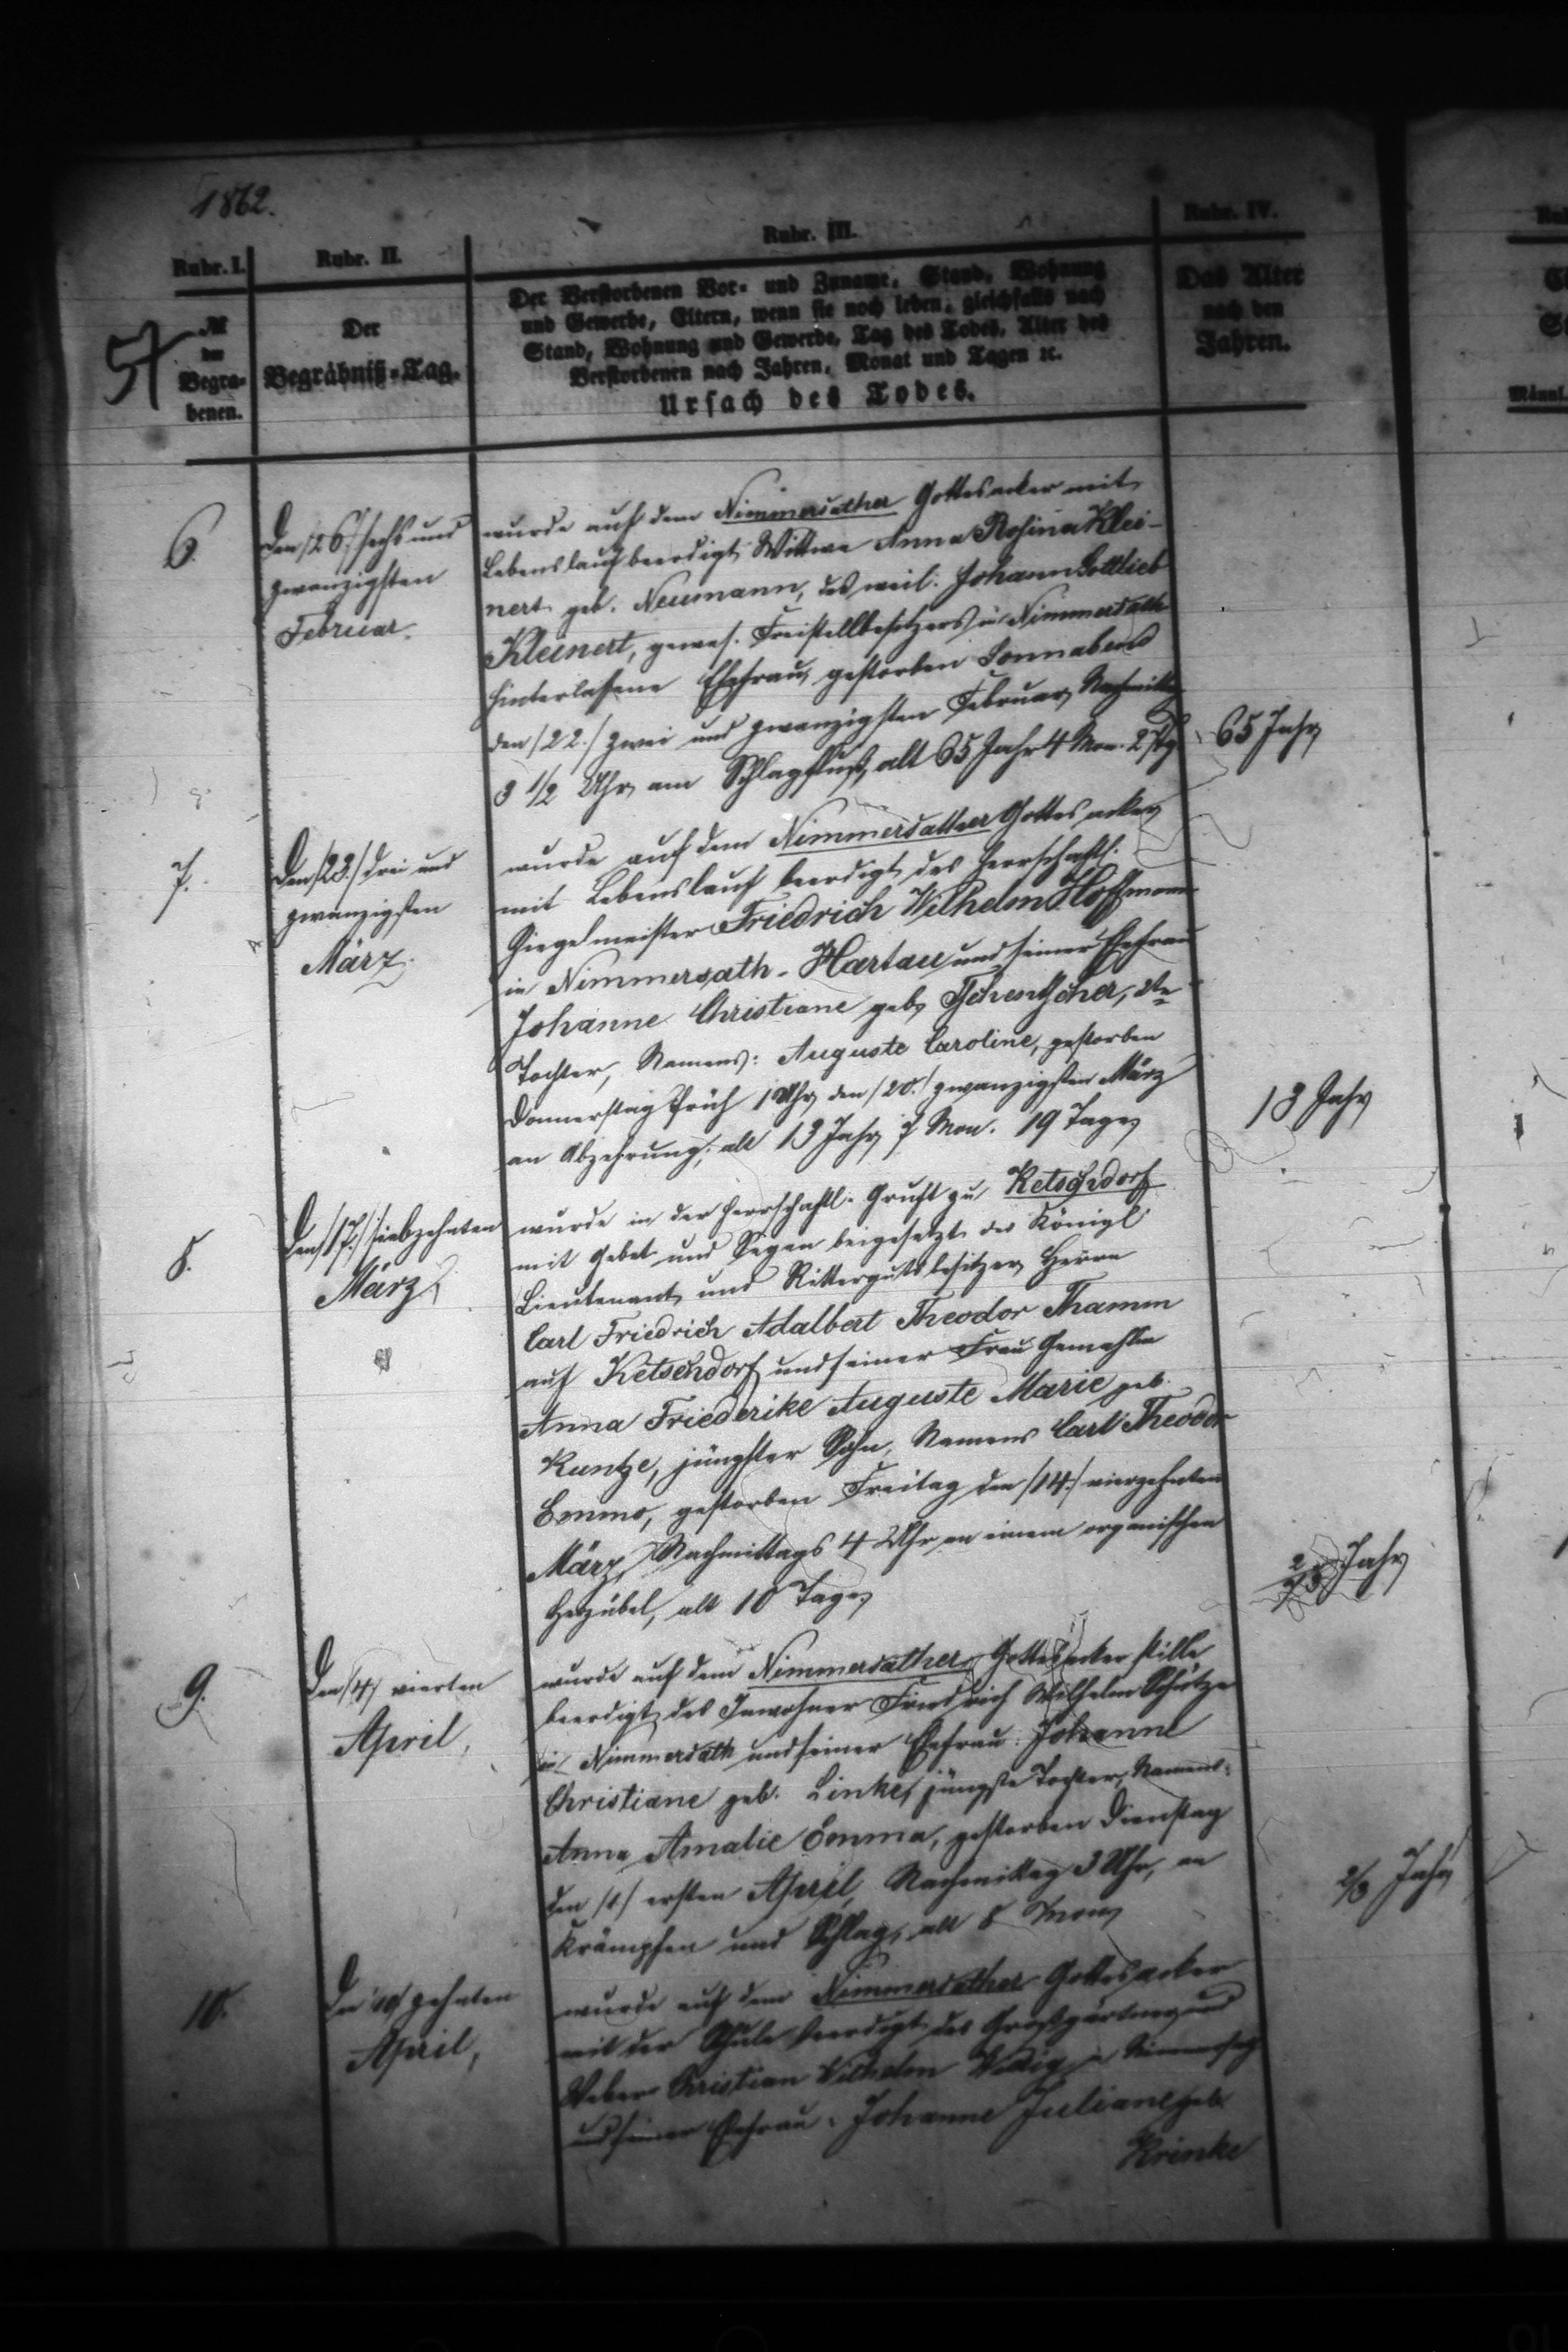 1862.
Rubr. I.
Rubr. II.
Rubr. III.
Rubr. IV.
57
№
der
Begra-
benen.
Der
Begräbniß-Tag.
Der Verstorbenen Vor- und Zuname, Stand, Wohnung
und Gewerbe, Eltern, wenn sie noch leben, gleichfalls nach
Stand, Wohnung und Gewerbe, Tag des Todes, Alter des
Verstorbenen nach Jahren, Monat und Tagen ꝛc.
Ursach des Todes.
Das Alter
nach den
Jahren.
Männl.
6.
Den /26./ sechs und
zwanzigsten
Februar.
wurde auf dem Nimmersather Gottesacker mit
Lebenslauf beerdigt Wittwe Anna Rosina Klei-
nert geb. Neumann, des weil. Johann Gottlieb
Kleinert, gewes. Freistellbesitzers in Nimmersath
hinterlassene Ehefrau, gestorben Sonnabend
den /22./ zwei und zwanzigsten Februar, Nachmittag
3 1/2 Uhr am Schlagfluß, alt 65 Jahr 4 Mon. 2 Tg.
65 Jahr
7.
Den /23./ drei und
zwanzigsten
März.
wurde auf dem Nimmersather Gottesacker
mit Lebenslauf beerdigt des herrschaftl.
Ziegelmeister Friedrich Wilhelm Hoffmann
in Nimmersath-Hartau und seiner Ehefrau
Johanne Christiane geb. Tschentscher,
Tochter, Namens: Auguste Caroline, gestorben
Donnerstag früh 1 Uhr den /20./ zwanzigsten März
an Abzehrung, alt 13 Jahr 7 Mon. 19 Tage
13 Jahr
8.
Den /17./ siebzehnten
März
wurde in der herrschaftl. Gruft zu Ketschdorf
mit Gebet und Segen beigesetzt des Königl.
Lieutenant und Rittergutsbesitzer Herrn
Carl Friedrich Adalbert Theodor Thamm
auf Ketschdorf und seiner Frau Gemahlin
Anna Friederike Auguste Marie geb.
Kuntze, jüngster Sohn, Namens Carl Theodor
Emmo, gestorben Freitag den /14./ vierzehnten
März Nachmittags 4 Uhr an einem organischen
Herzübel, alt 10 Tage
Jahr
9.
Den /4./ vierten
April,
wurde auf dem Nimmersather Gottesacker stille
beerdigt des Inwohner Friedrich Wilhelm Schütze
in Nimmersath und seiner Ehefrau: Johanne
Christiane geb. Linke, jüngste Tochter, Namens:
Anna Amalie Emma, gestorben Dienstag
den /1/ ersten April, Nachmittag 3 Uhr, an
Krämpfen und Schlag, alt 8 Mon
2/3 Jahr
10.
Den /10/ zehnten
April,
wurde auf dem Nimmersather Gottesacker
mit der Schule beerdigt des Großgärtner und
Weber Christian Wilhelm in Nimmersath
und seiner Ehefrau: Johanne Juliane geb.
Krinke